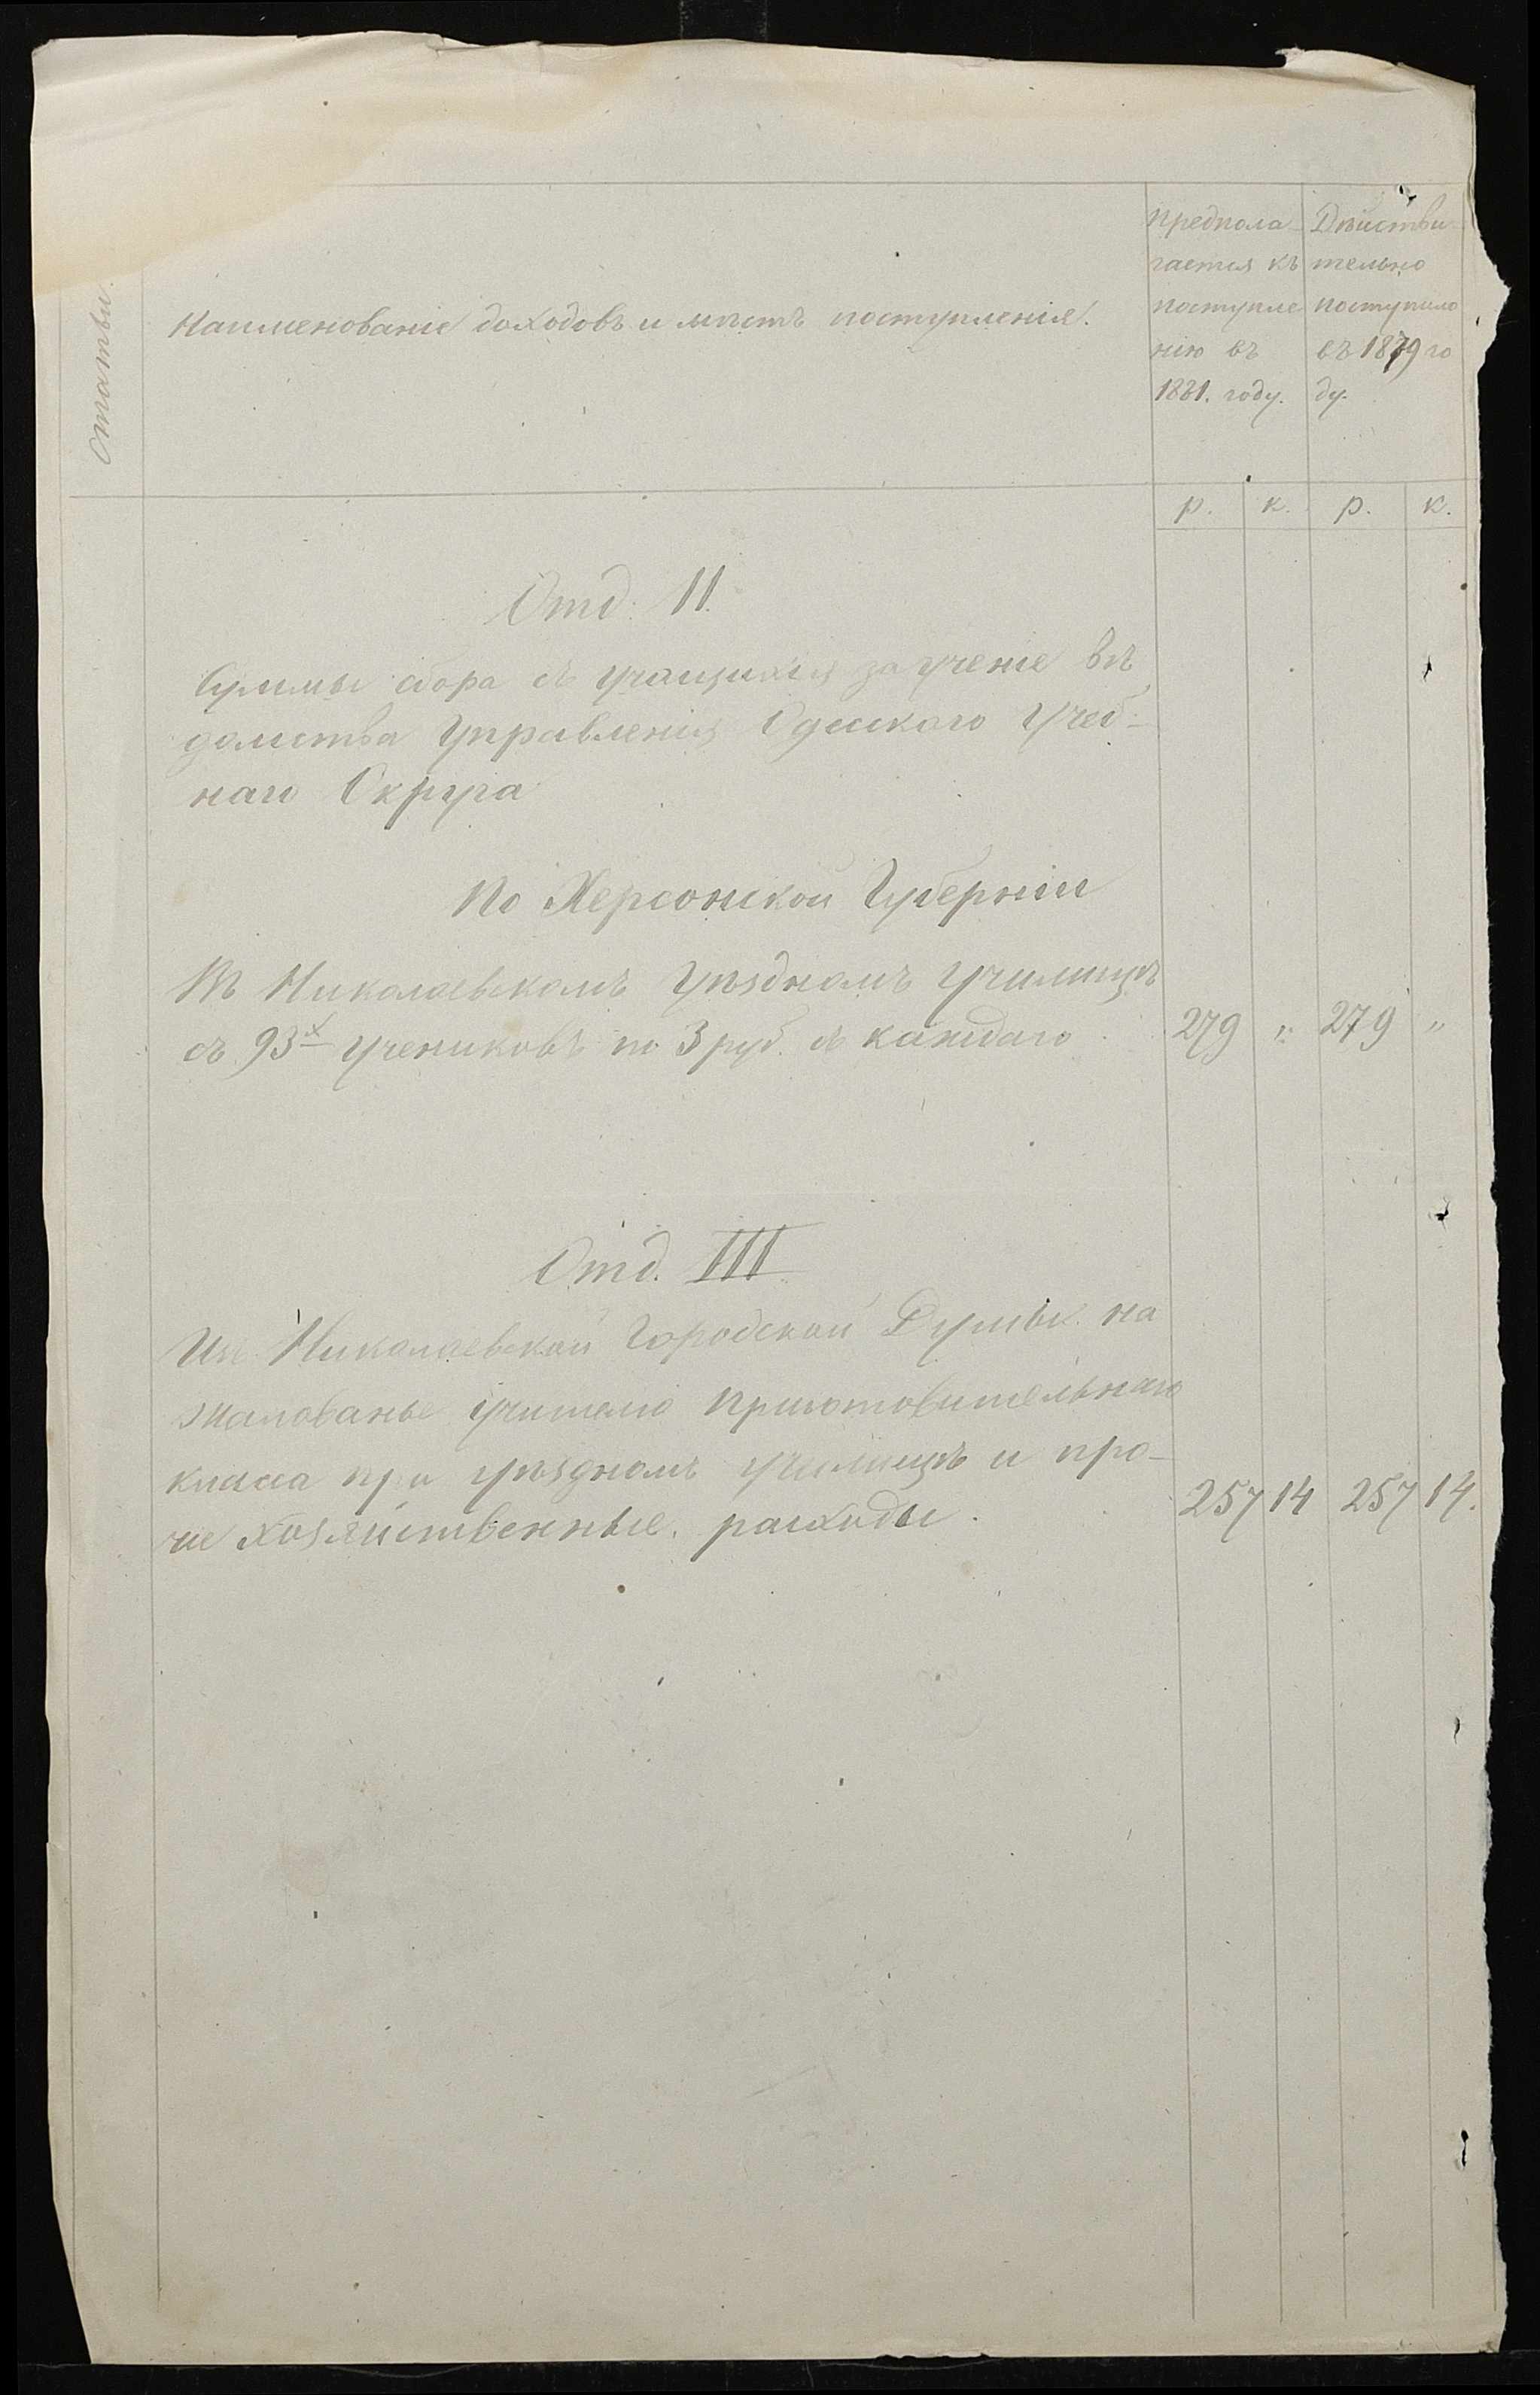 Статьи.
Наименованіе доходовъ и мѣстъ поступленія.
Предпола-
гается къ
поступле
нію въ
1881. году.
Дѣйстви-
тельно
поступило
въ 1879 го
ду.
р. к. р. к.
Отд. II.
Суммы сбора съ учащихся за ученіе вѣ
домства Управленія Одесскаго Учеб-
наго Округа
По Херсонской Губерніи
Въ Николаевскомъ Уѣздномъ Училищѣ
съ 93х учениковъ по 3 руб. съ каждаго 279 " 279 "
Отд. III.
Изъ Николаевской Городской Думы на
жалованье учителю приготовительнаго
класса при уѣздномъ училищѣ и про-
чіе хозяйственные расходы. 257 14 257 14.